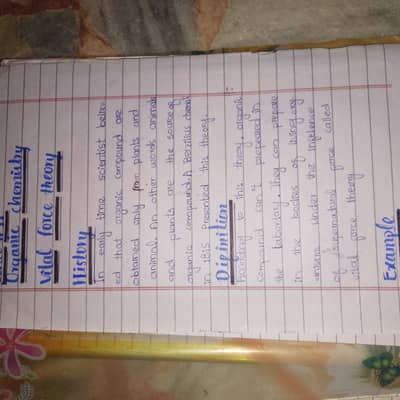 Organic chemistry
Vital force theory
History
In early time scientist belive
ed that organic compound are
obtained only from plants and
animal. In other words animals
and plants are the source of
organic compound. A Berzilius chemist
in 1815 presented this theory.
Definition
According to this theory, organic
compound can't prepared in
the labortary. They can prepare
in the bodies of living org
anisms under the influence
of supernatural force called
vital force theory
Example